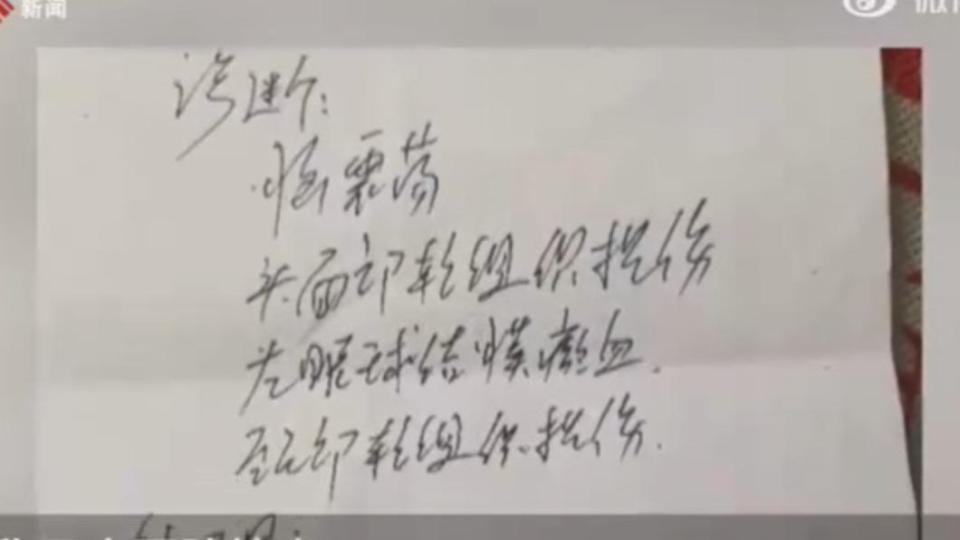 新闻
诊断:
脑震荡
头面部软组织挫伤
左眼球结膜瘀血.
部软组织挫伤.